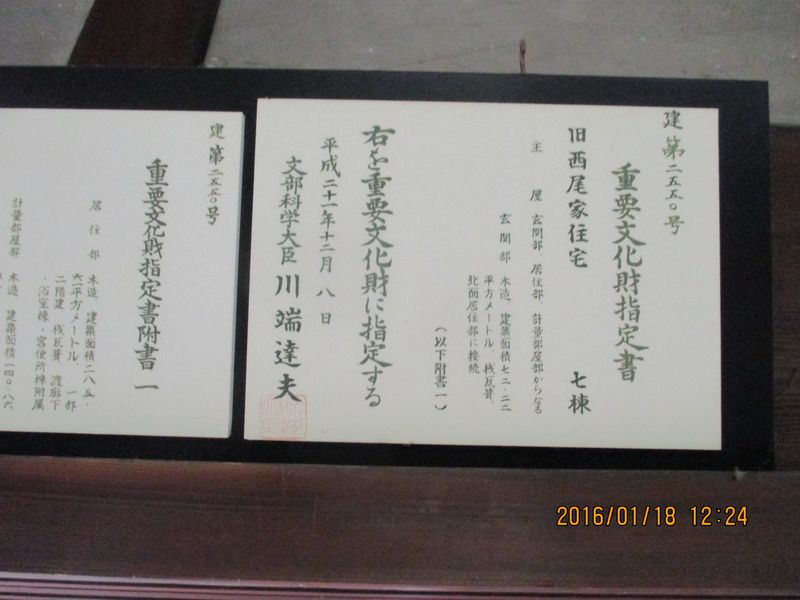 建第二五五〇号
重要文化財指定書
旧西尾家住宅 七棟
主屋 玄関部、居住部、計量部屋部からなる
玄関部 木造、建築面積七二・二二
平方メートル、桟瓦葺、
北面居住部に接続
(以下附書一)
右を重要文化財に指定する
平成二十一年十二月八日
文部科学大臣 川端達夫
建第二五五〇号
重要文化財指定書附書一
居住部 木造、建築面積二八五・
六一平方メートル、一部
二階建、桟瓦葺、渡廊下
・浴室棟・宮便所棟附属
計量部屋部 木造、建築面積一四〇・八六
2016/01/18 12:24